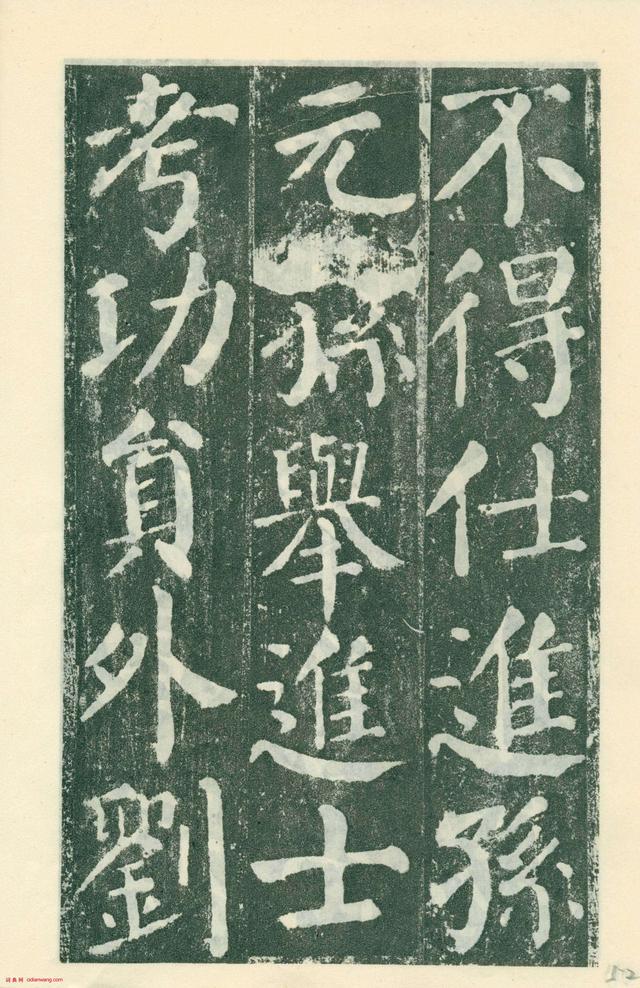 不得仕進孫
元孫舉進士
考功貟外劉
词典网 cidianwang.com